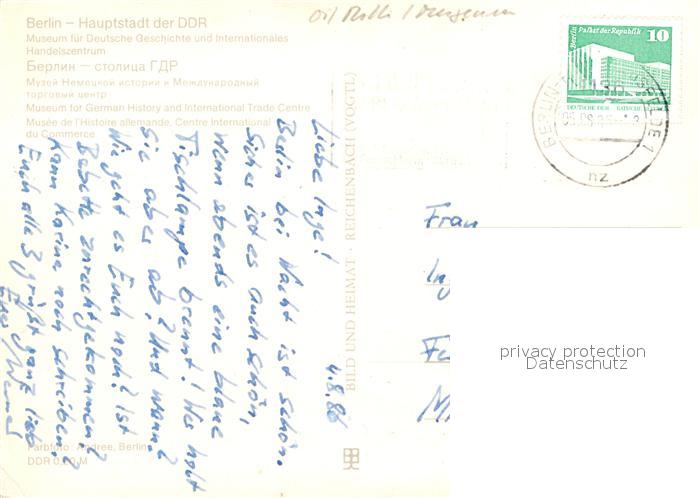 Berlin – Hauptstadt der DDR
Museum für Deutsche Geschichte und Internationales
Handelszentrum
Берлин – столица ГДР
Музей Немецкой истории и Международный
торговый центр
Museum for German History and International Trade Centre
Musée de l'Histoire allemande, Centre International
du Commerce
4.8.86
Liebe Inge!
Berlin bei Nacht ist schön.
Sicher ist es auch schön,
wenn abends eine blaue
Tischlampe brennt! Wer holt
sie aber ab? Und wann?
Wie geht es Euch noch? Ist
Babette zurechtgekommen?
Kann Karina noch schreiben?
Euch alle 3 grüßt ganz lieb
Euer Werner
Farbfoto: Andree, Berlin
DDR 0,20 M
BILD UND HEIMAT · REICHENBACH (VOGTL)
Berlin Palast der Republik
10
BERLIN
1
nz
Frau
In
privacy protection
Datenschutz